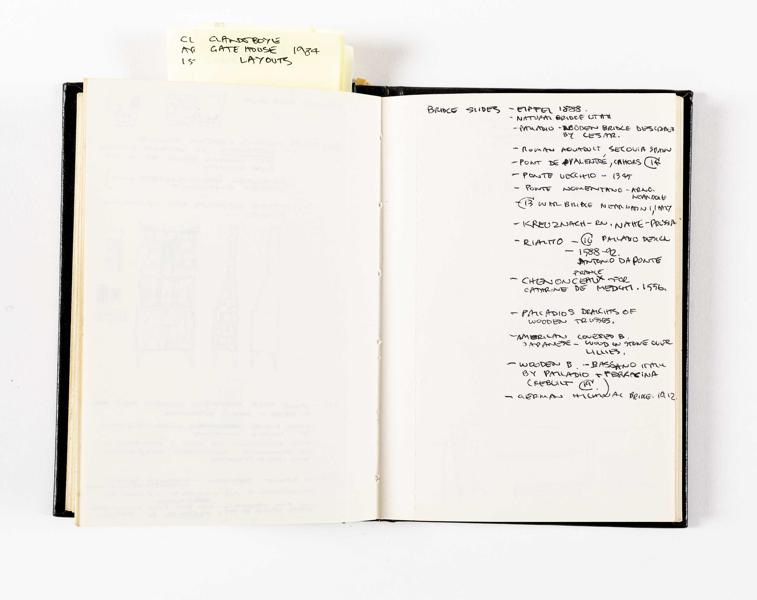 CL CLANDEBOYE
GATE HOUSE 1984
LAYOUTS
BRIDGE SLIDES - EIFFEL 1888.
- NATURAL BRIDGE UTAH
- PALLADIO - WOODEN BRIDGE DESCRIBED
BY CESAR.
- ROMAN AQUADUCT SEGOVIA SPAIN
- PONT DE VALENTRÉ, CAHORS 14
- PONTE VECCHIO - 1345
- PONTE NOMENTANO -
- 13 WAR BRIDGE NEAR
- KREUZNACH - RV. NAHE - PRUSSIA
- RIALTO - 16 PALLADIO DESIGN
- 1588-92.
ANTONIO DA PONTE
FRANCE
- CHENONCEAUX FOR
CATHRINE DE MEDICI. 1556.
- PALLADIOS DRAUGHTS OF
WOODEN TRUSSES.
- AMERICAN COVERED B.
JAPANESE - WOOD ON STONE OVER
LILLIES.
- WOODEN B. - BASSANO ITALY
BY PALLADIO + FERRACINA
(REBUILT 19)
- GERMAN BRIDGE. 1912